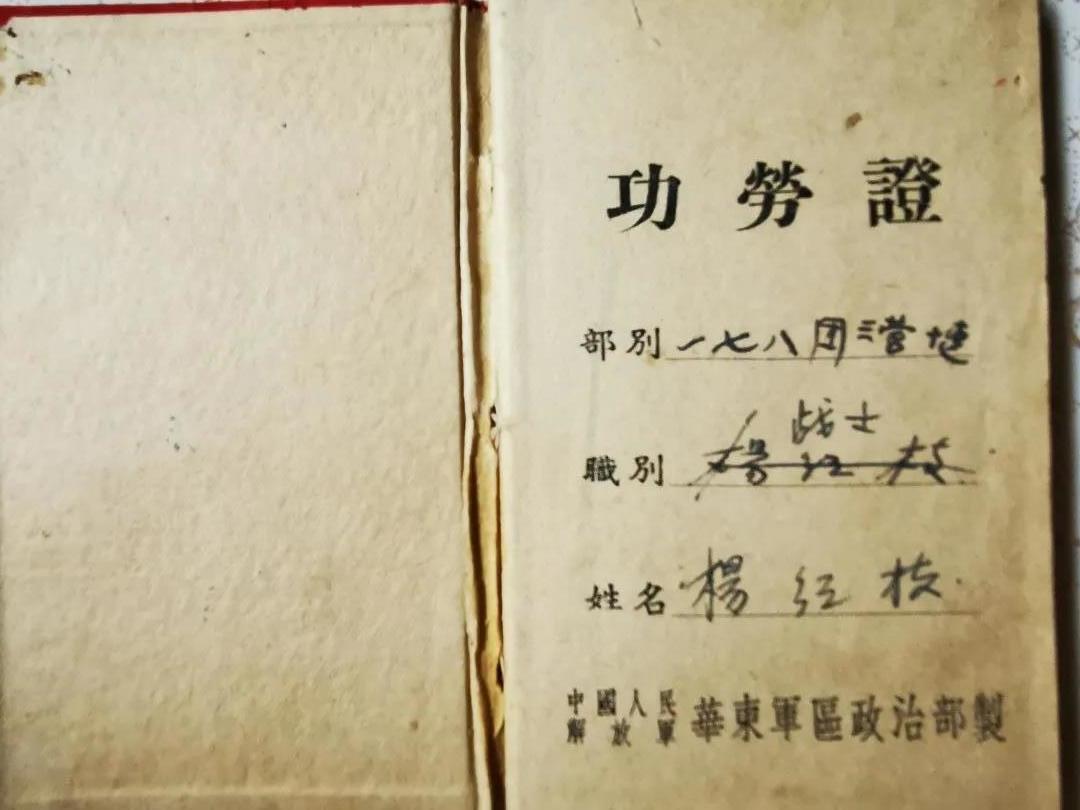 功勞證
部別 一七八团三营十連
战士
職別 楊红枝
姓名 楊红枝
中國人民解放軍 華東軍區政治部製